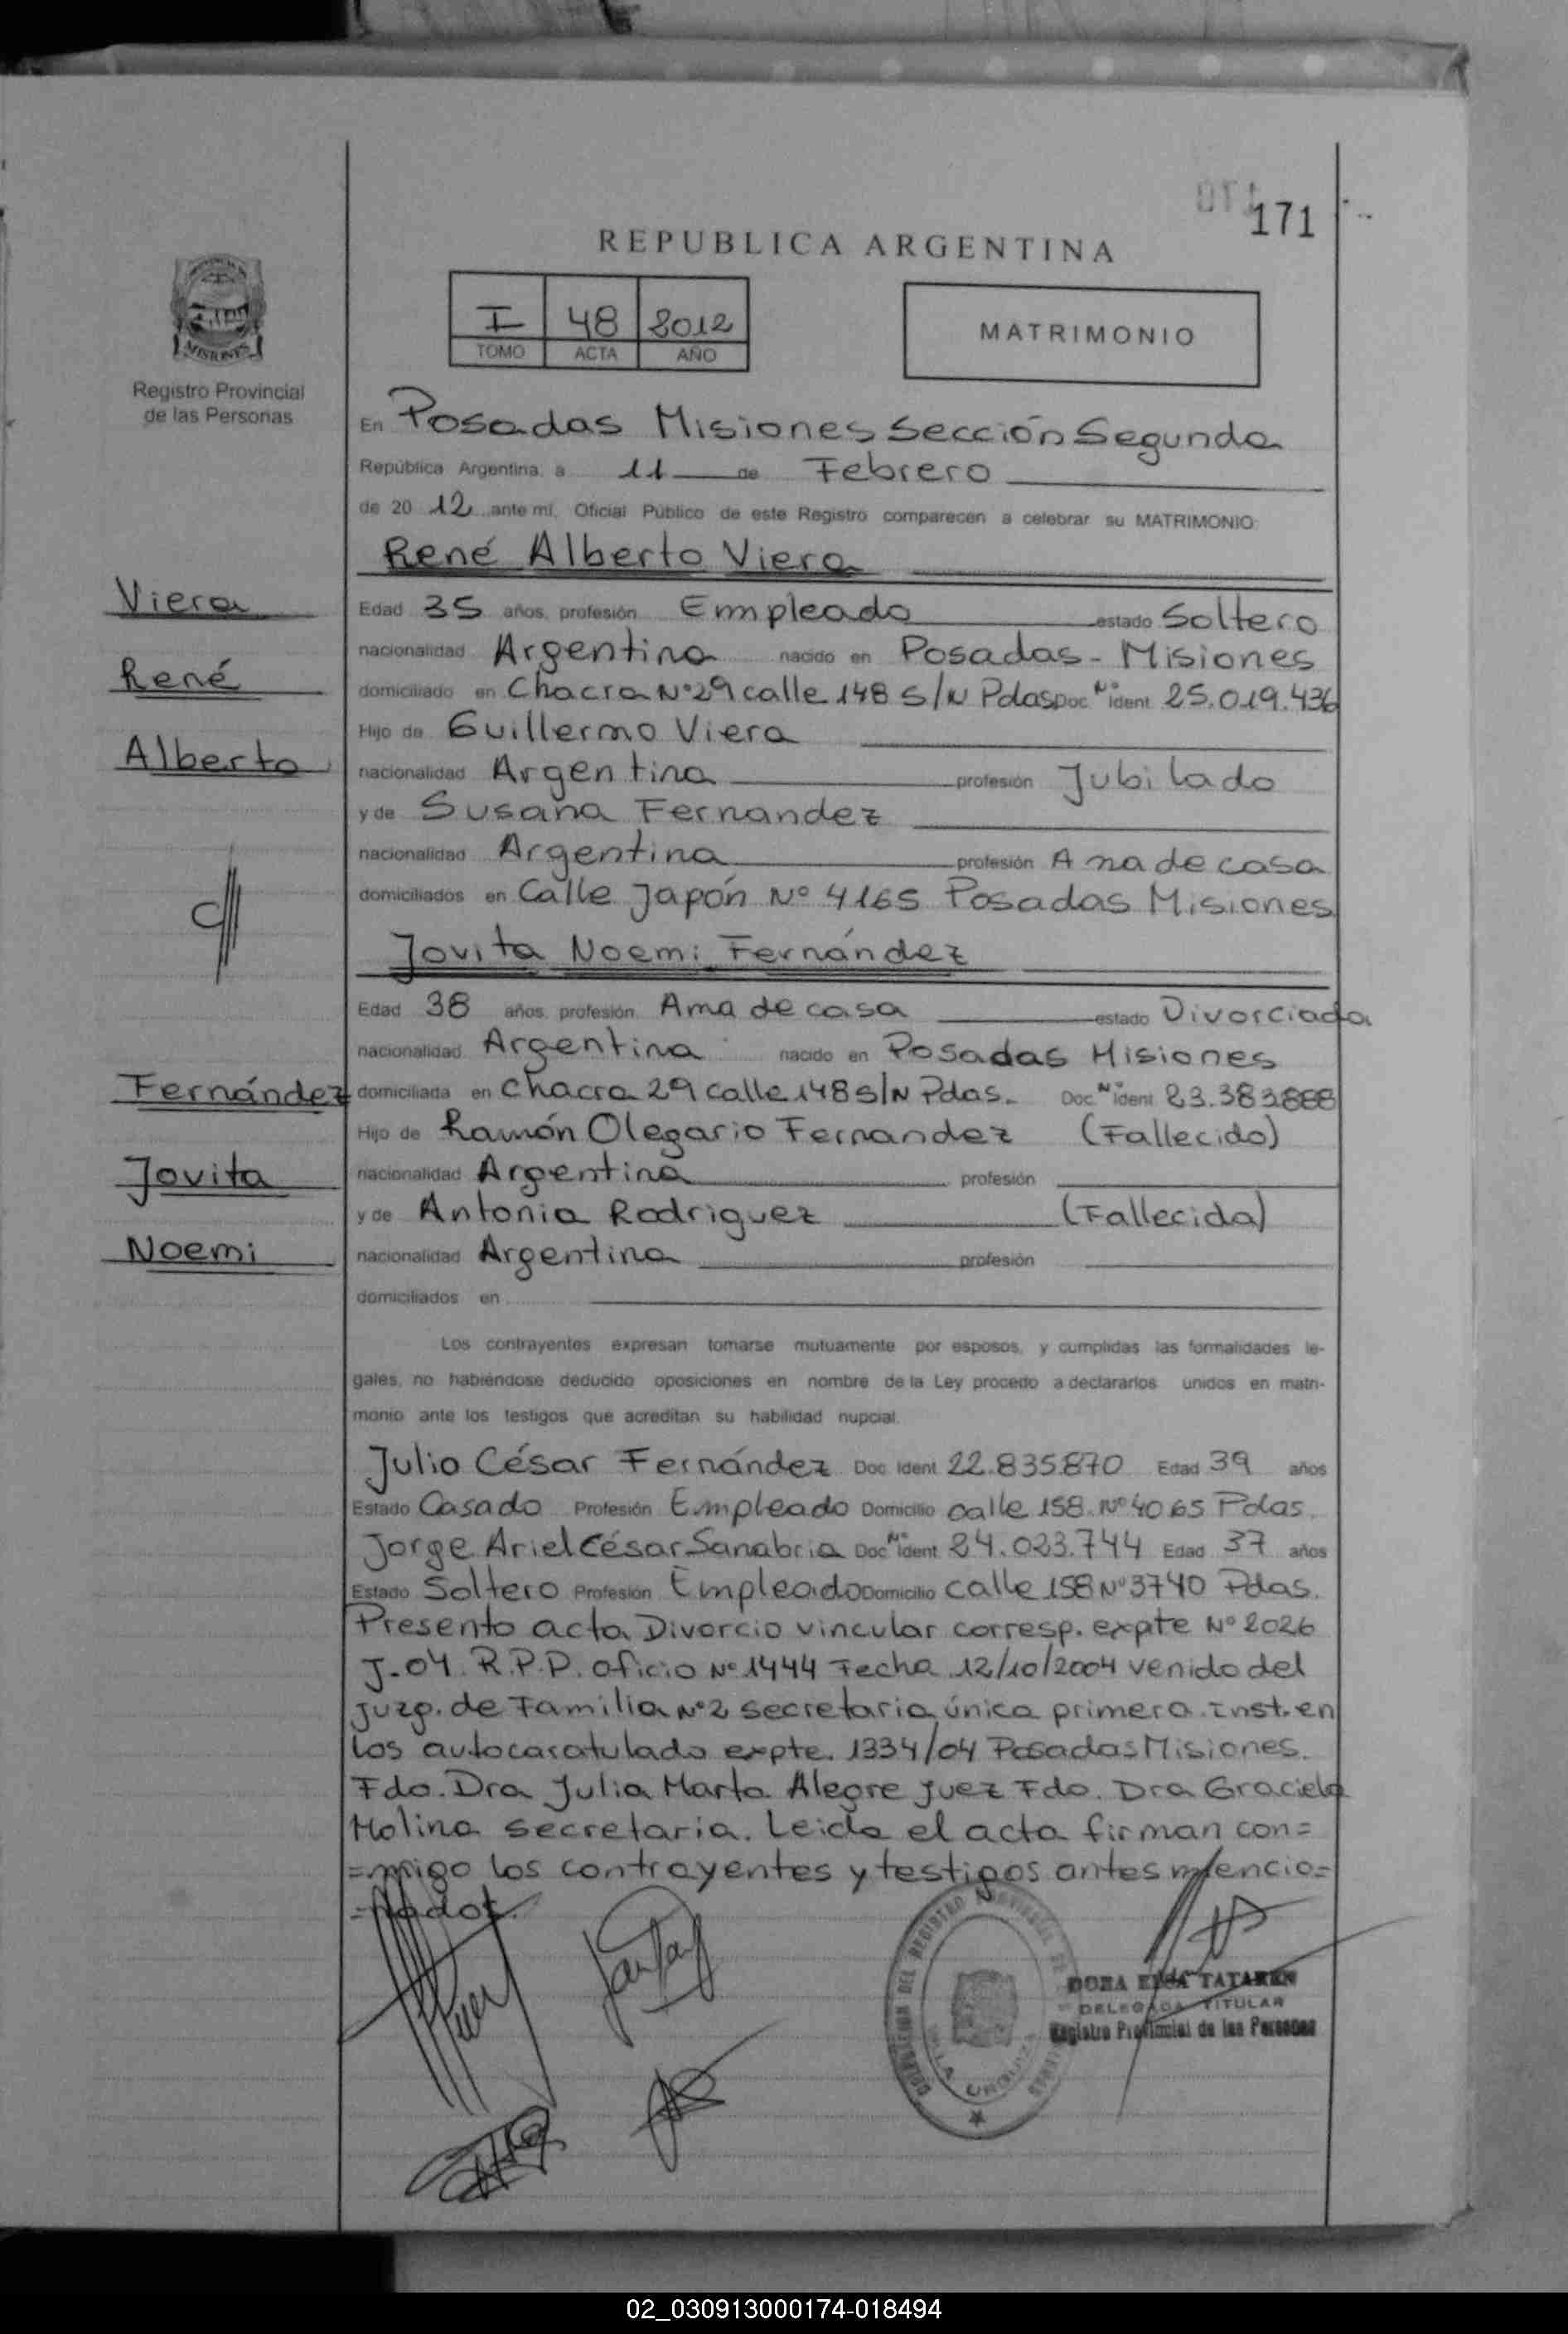 171
REPUBLICA ARGENTINA
I 48 2012
TOMO ACTA AÑO
MATRIMONIO
MISIONES
Registro Provincial
de las Personas
En Posadas Misiones Sección Segunda
República Argentina, a 11 de Febrero
de 20 12 ante mí, Oficial Público de este Registro comparecen a celebrar su MATRIMONIO:
René Alberto Viera
Viera
Edad 35 años, profesión Empleado estado Soltero
nacionalidad Argentina nacido en Posadas - Misiones
René
domiciliado en Chacra Nº 29 calle 148 S/N Pdas Doc. Nº ident 25.019.436
Hijo de Guillermo Viera
Alberto
nacionalidad Argentina profesión Jubilado
y de Susana Fernandez
nacionalidad Argentina profesión Ama de casa
domiciliados en Calle Japón Nº 4165 Posadas Misiones
Jovita Noemi Fernández
Edad 38 años, profesión Ama de casa estado Divorciada
nacionalidad Argentina nacido en Posadas Misiones
Fernández
domiciliada en Chacra 29 calle 148 S/N Pdas. Doc. Nº ident 23.383.888
Hijo de Ramón Olegario Fernandez (Fallecido)
Jovita
nacionalidad Argentina profesión
y de Antonia Rodriguez (Fallecida)
Noemi
nacionalidad Argentina profesión
domiciliados en
Los contrayentes expresan tomarse mutuamente por esposos, y cumplidas las formalidades le-
gales, no habiéndose deducido oposiciones en nombre de la Ley procedo a declararlos unidos en matri-
monio ante los testigos que acreditan su habilidad nupcial.
Julio César Fernández Doc. Ident 22.835.870 Edad 39 años
Estado Casado Profesión Empleado Domicilio calle 158 Nº 4065 Pdas.
Jorge Ariel César Sanabria Doc. Nº ident 24.023.744 Edad 37 años
Estado Soltero Profesión Empleado Domicilio calle 158 Nº 3740 Pdas.
Presento acta Divorcio vincular corresp. expte Nº 2026
J-04 R.P.P. oficio Nº 1444 Fecha 12/10/2004 venido del
juzg. de Familia Nº 2 secretaria única primera Inst. en
los autocaratulado expte. 1334/04 Posadas Misiones.
Fdo. Dra Julia Marta Alegre juez Fdo. Dra Graciela
Molina secretaria. Leida el acta firman con=
=migo los contrayentes y testigos antes mencio=
=nados.
DELEGADA TITULAR
Registro Provincial de las Personas
02_030913000174-018494